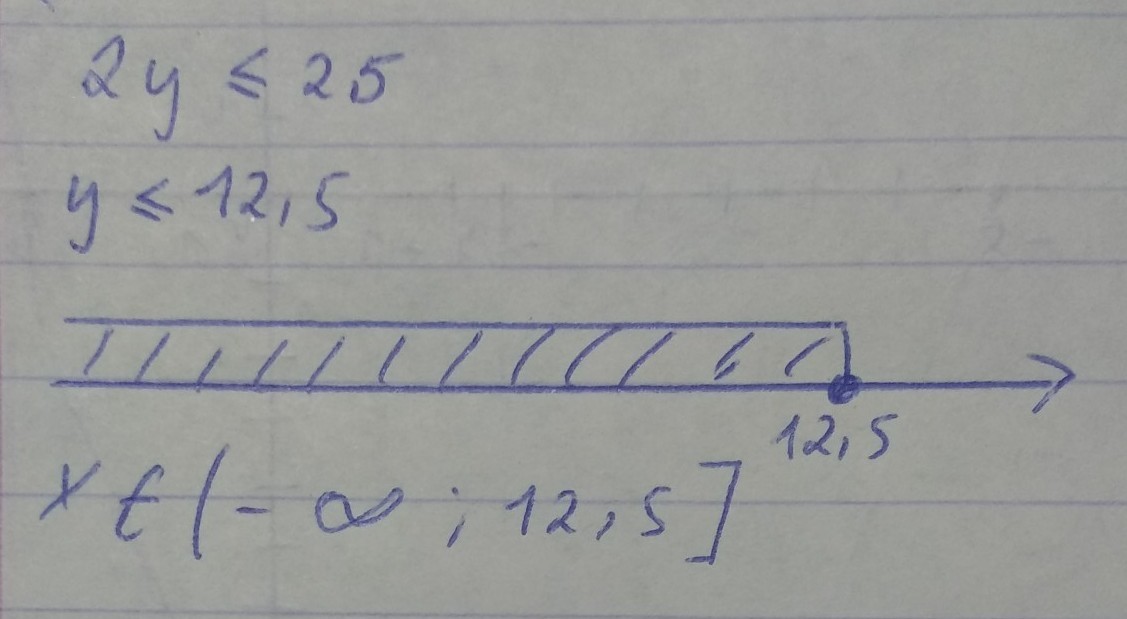 2y ≤ 25
y ≤ 12,5
12,5
x ∈ (-∞; 12,5]